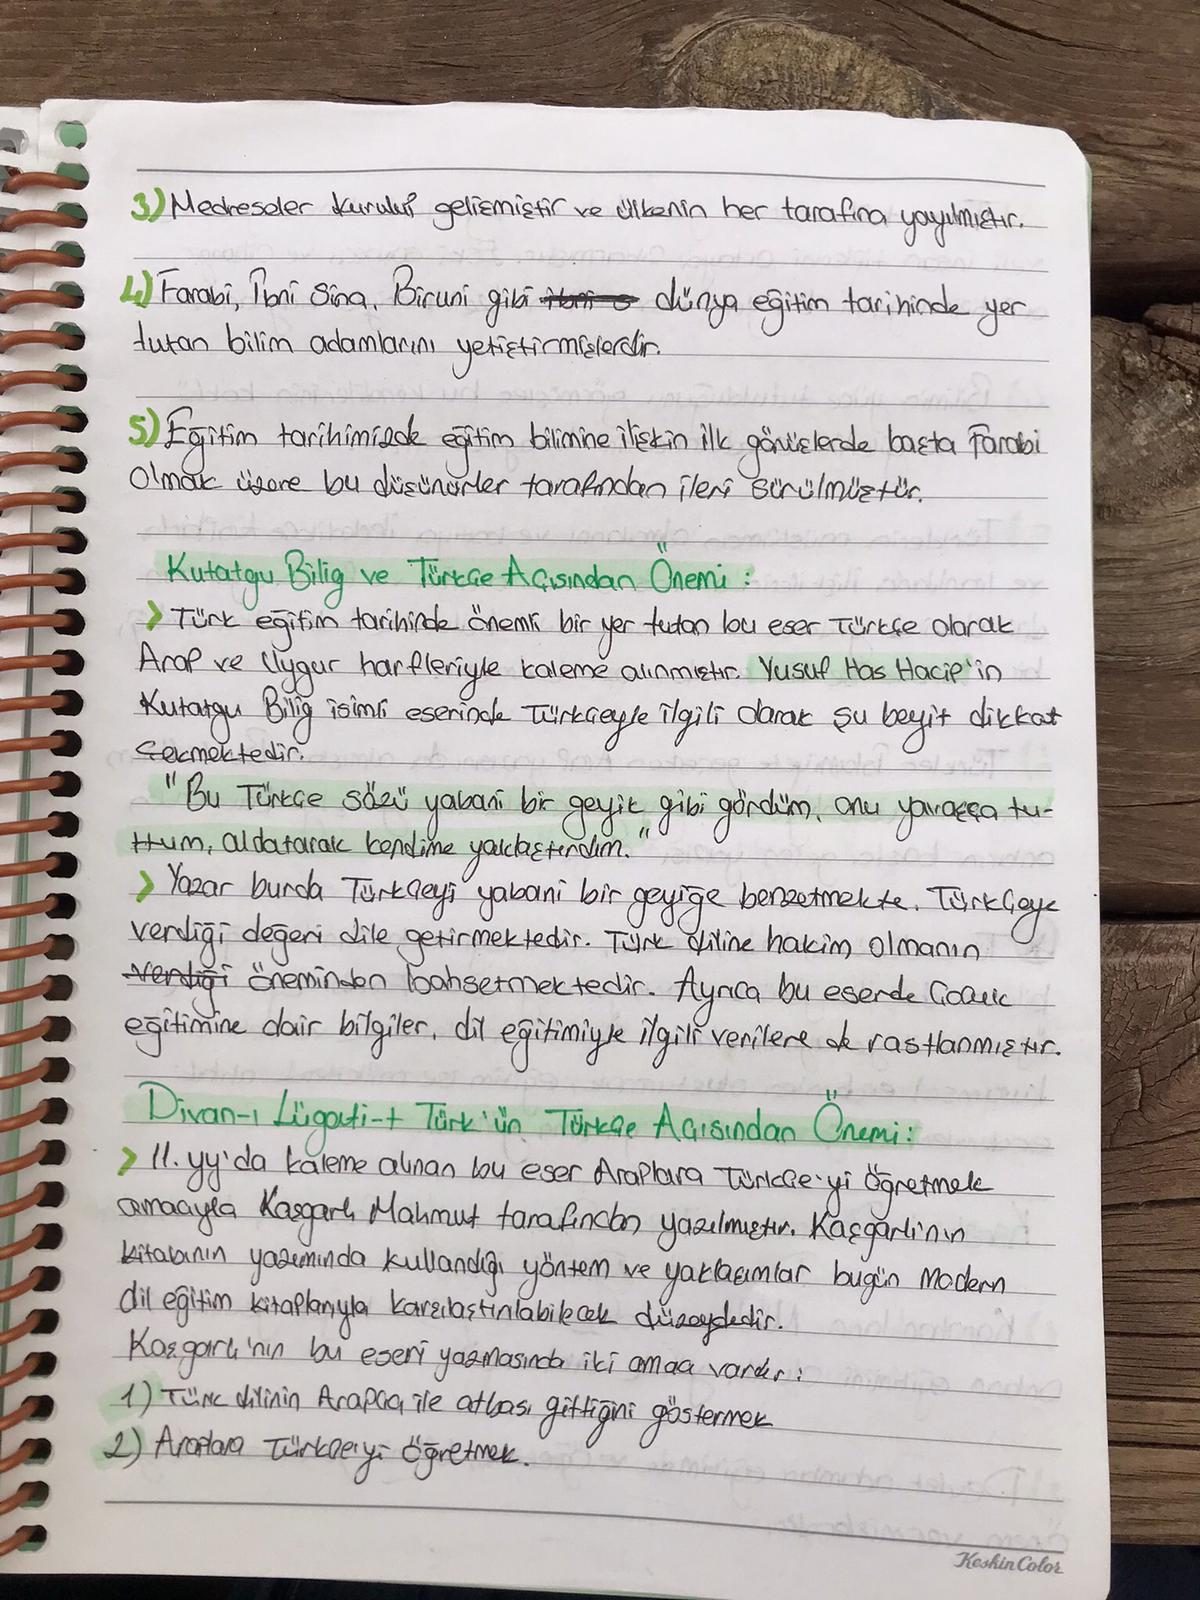 3) Medreseler kurulup gelişmiştir ve ülkenin her tarafına yayılmıştır.
4) Farabi, İbni Sina, Biruni gibi dünya eğitim tarihinde yer
tutan bilim adamlarını yetiştirmişlerdir.
5) Eğitim tarihimizde eğitim bilimine ilişkin ilk görüşlerde başta Farabi
olmak üzere bu düşünürler tarafından ileri sürülmüştür.
Kutatgu Bilig ve Türkçe Açısından Önemi :
> Türk eğitim tarihinde önemli bir yer tutan bu eser Türkçe olarak
Arap ve Uygur harfleriyle kaleme alınmıştır. Yusuf Has Hacip'in
Kutatgu Bilig isimli eserinde Türkçeyle ilgili olarak şu beyit dikkat
çekmektedir.
"Bu Türkçe sözü yabani bir geyik gibi gördüm, onu yavaşça tu-
ttum, aldatarak kendime yaklaştırdım."
> Yazar burda Türkçeyi yabani bir geyiğe benzetmekte, Türkçeye
verdiği değeri dile getirmektedir. Türk diline hakim olmanın
verdiği öneminden bahsetmektedir. Ayrıca bu eserde çocuk
eğitimine dair bilgiler, dil eğitimiyle ilgili verilere de rastlanmıştır.
Divan-ı Lügati-t Türk'ün Türkçe Açısından Önemi :
> 11. yy'da kaleme alınan bu eser Araplara Türkçe'yi öğretmek
amacıyla Kaşgarlı Mahmut tarafından yazılmıştır. Kaşgarlı'nın
kitabının yazımında kullandığı yöntem ve yaklaşımlar bugün modern
dil eğitim kitaplarıyla karşılaştırılabilecek düzeydedir.
Kaşgarlı'nın bu eseri yazmasında iki amacı vardır :
1) Türk dilinin Arapça ile atbaşı gittiğini göstermek
2) Araplara Türkçe'yi öğretmek.
KeskinColor